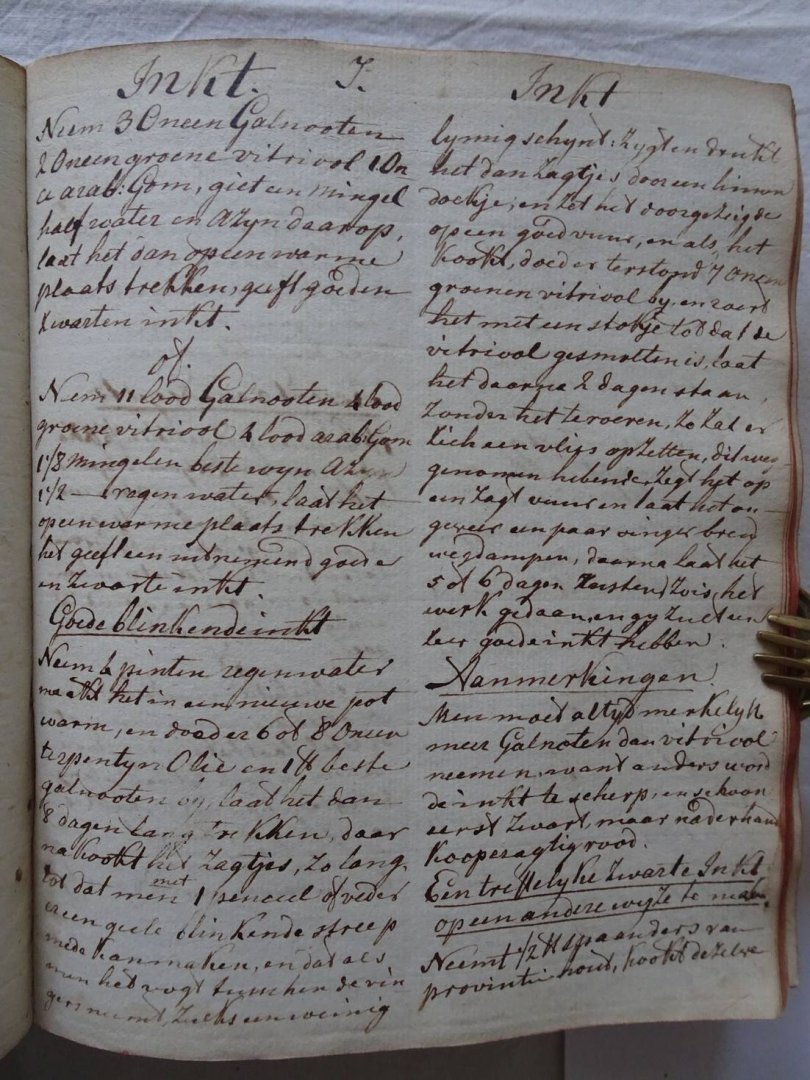 Inkt. I.
Neem 3 Oncen Galnooten
2 Oncen groene vitriool 1 On
ce arab: Gom, giet een mingel
half water en Azyn daar op,
laat het dan op een warme
plaats trekken, geeft goeden
Zwarten inkt.
of.
Neem 11 lood Galnooten 4 lood
groene vitriool 4 lood arab: Gom
1 1/8 mingelen beste wyn Azyn
1 1/2 — regen water, laat het
op een warme plaats trekken
het geeft een uitnemend goede
en Zwarte inkt.
Goede blinkende inkt
Neem 4 pinten regenwater
maakt het in een nieuwe pot
warm, en doed er 6 of 8 Oncen
terpentyn Olie en 1 ℔ beste
galnooten by, laat het dan
8 dagen lang trekken, daar
na kookt het Zagtjes, Zo lang
tot dat men met 1 penceel of veder
er een geele blinkende streep
mede kan maken, en dat als
men het vogt tusschen de vin
gers neemt, Zulks een weinig
Inkt
lymig schynt: Zygt en drukt
het dan Zagtjes door een linnen
doekje, en Zet het doorgezeigde
op een goed vuur, en als het
kookt, doed er terstond 7 Oncen
groenen vitriool by, en roert
het met een stokje tot dat de
vitriool gesmolten is, laat
het daarna 2 dagen staan,
Zonder het te roeren, Zo Zal er
Zich een vlies op zetten, dit weg
genomen hebbende, Zegt hyt op
een Zagt vuur en laat het on
geveer een paar vinger breed
wegdampen, daarna laat het
5 of 6 dagen Rusten, Zo is het
werk gedaan, en gy Zult een
Zeer goede inkt hebben.
Aanmerkingen
Men moet altyd merkelyk
meer Galnoten dan vitriool
neemen, want anders word
de inkt te scherp, en schoon
eerst Zwart, maar naderhand
kooperagtig rood.
Een treffelyke Zwarte Inkt
op een andere wyze te maken.
Neemt 1/2 ℔ spaanders van
provintie hout, kookt dezelve